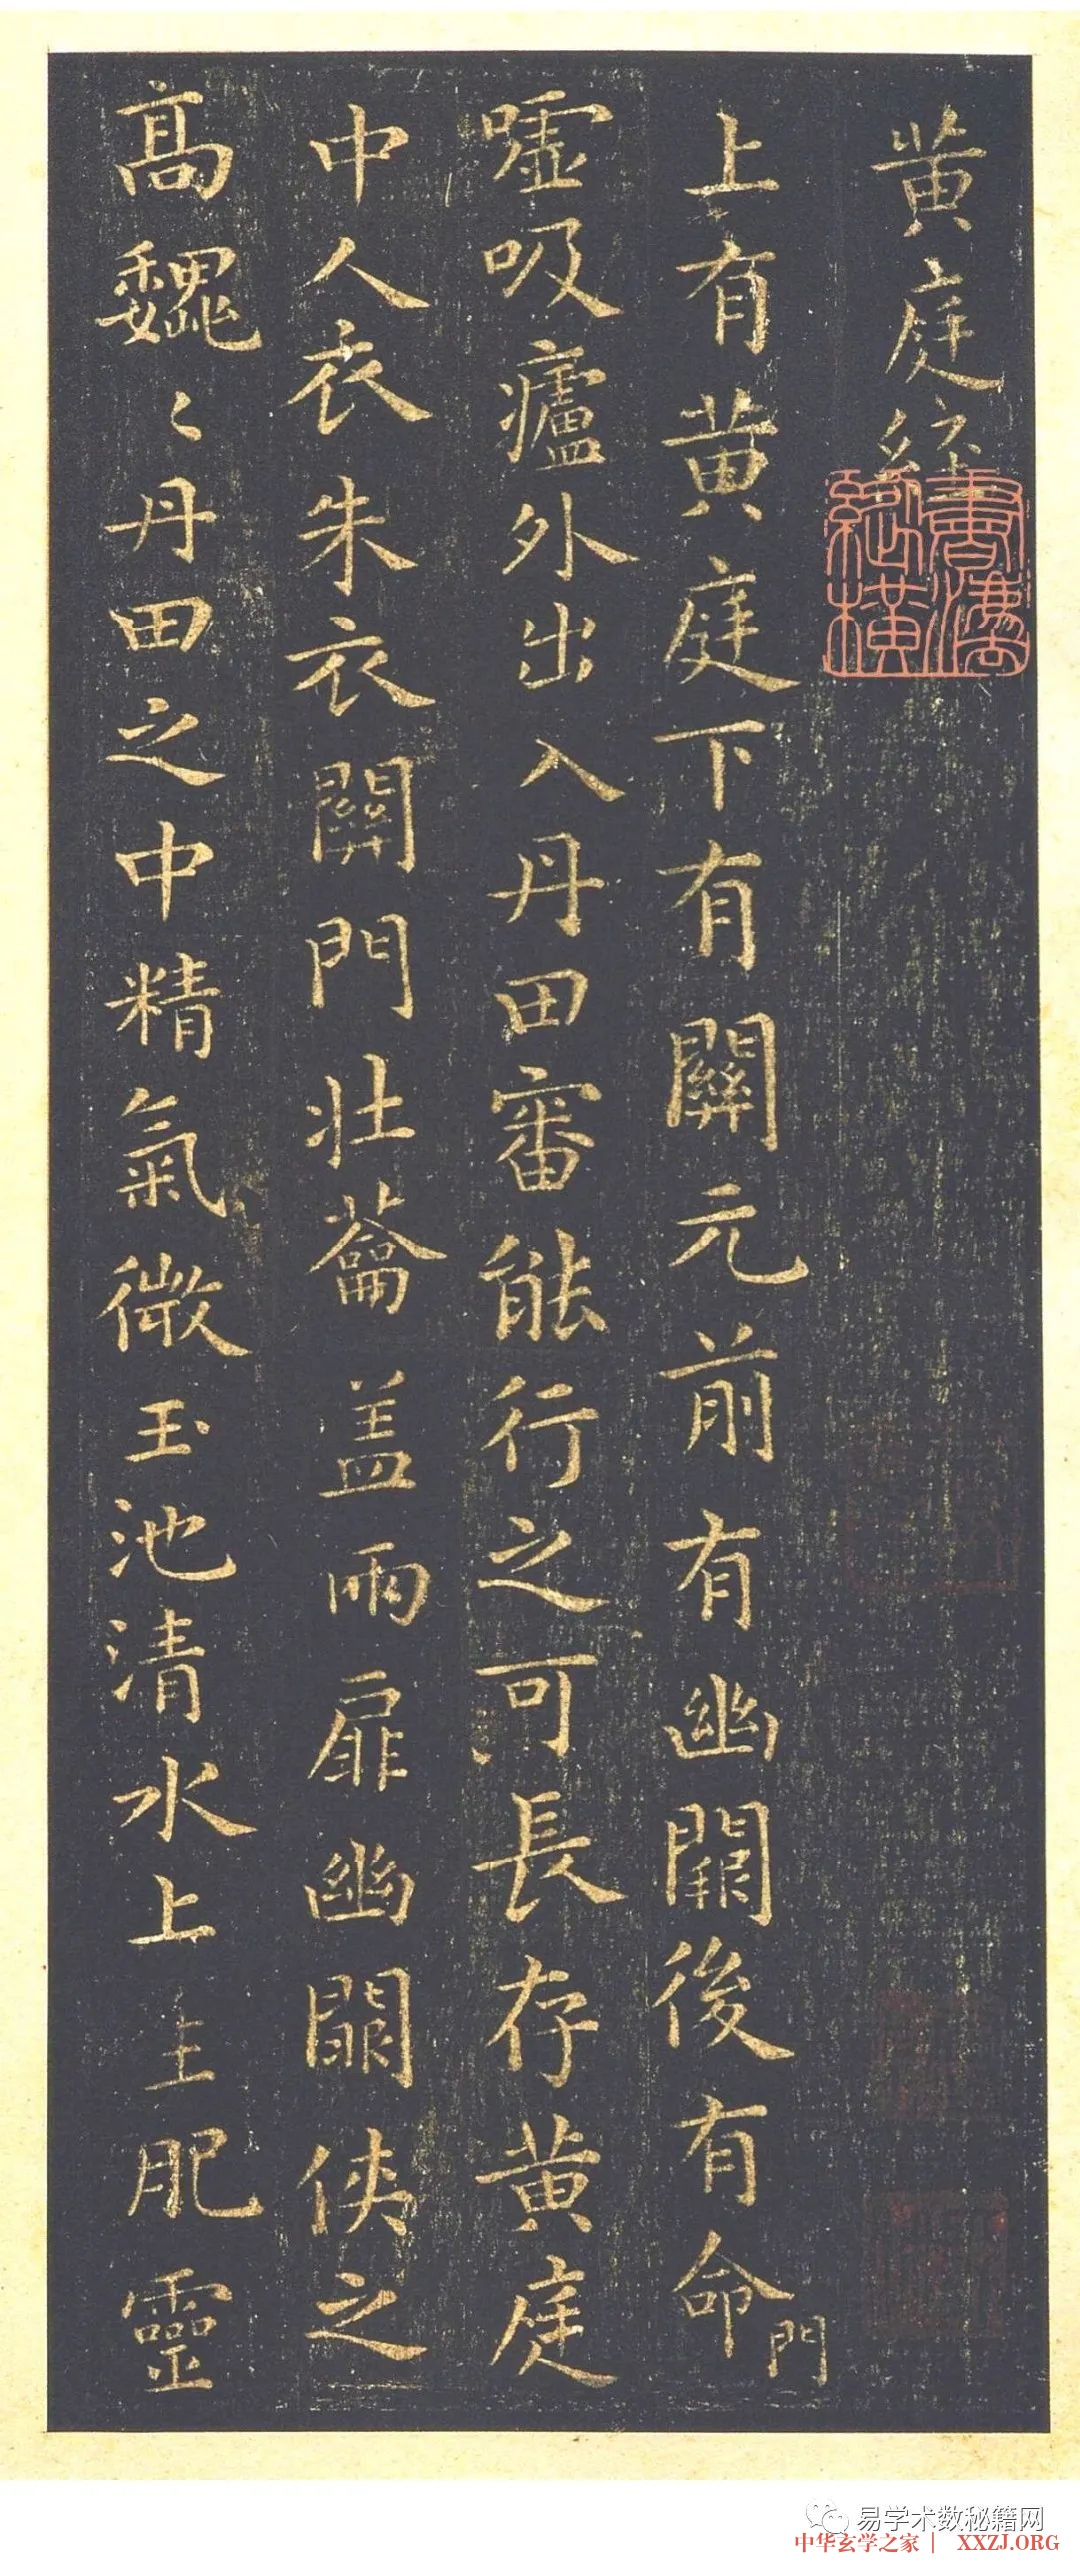 黄庭經
上有黄庭下有關元前有幽闕後有命門
嘘吸廬外出入丹田審能行之可長存黄庭
中人衣朱衣關門壯蘥盖兩扉幽闕俠之
高巍〻丹田之中精氣微玉池清水上生肥靈
易学术数秘籍网
中华玄学之家 | XXZJ.ORG